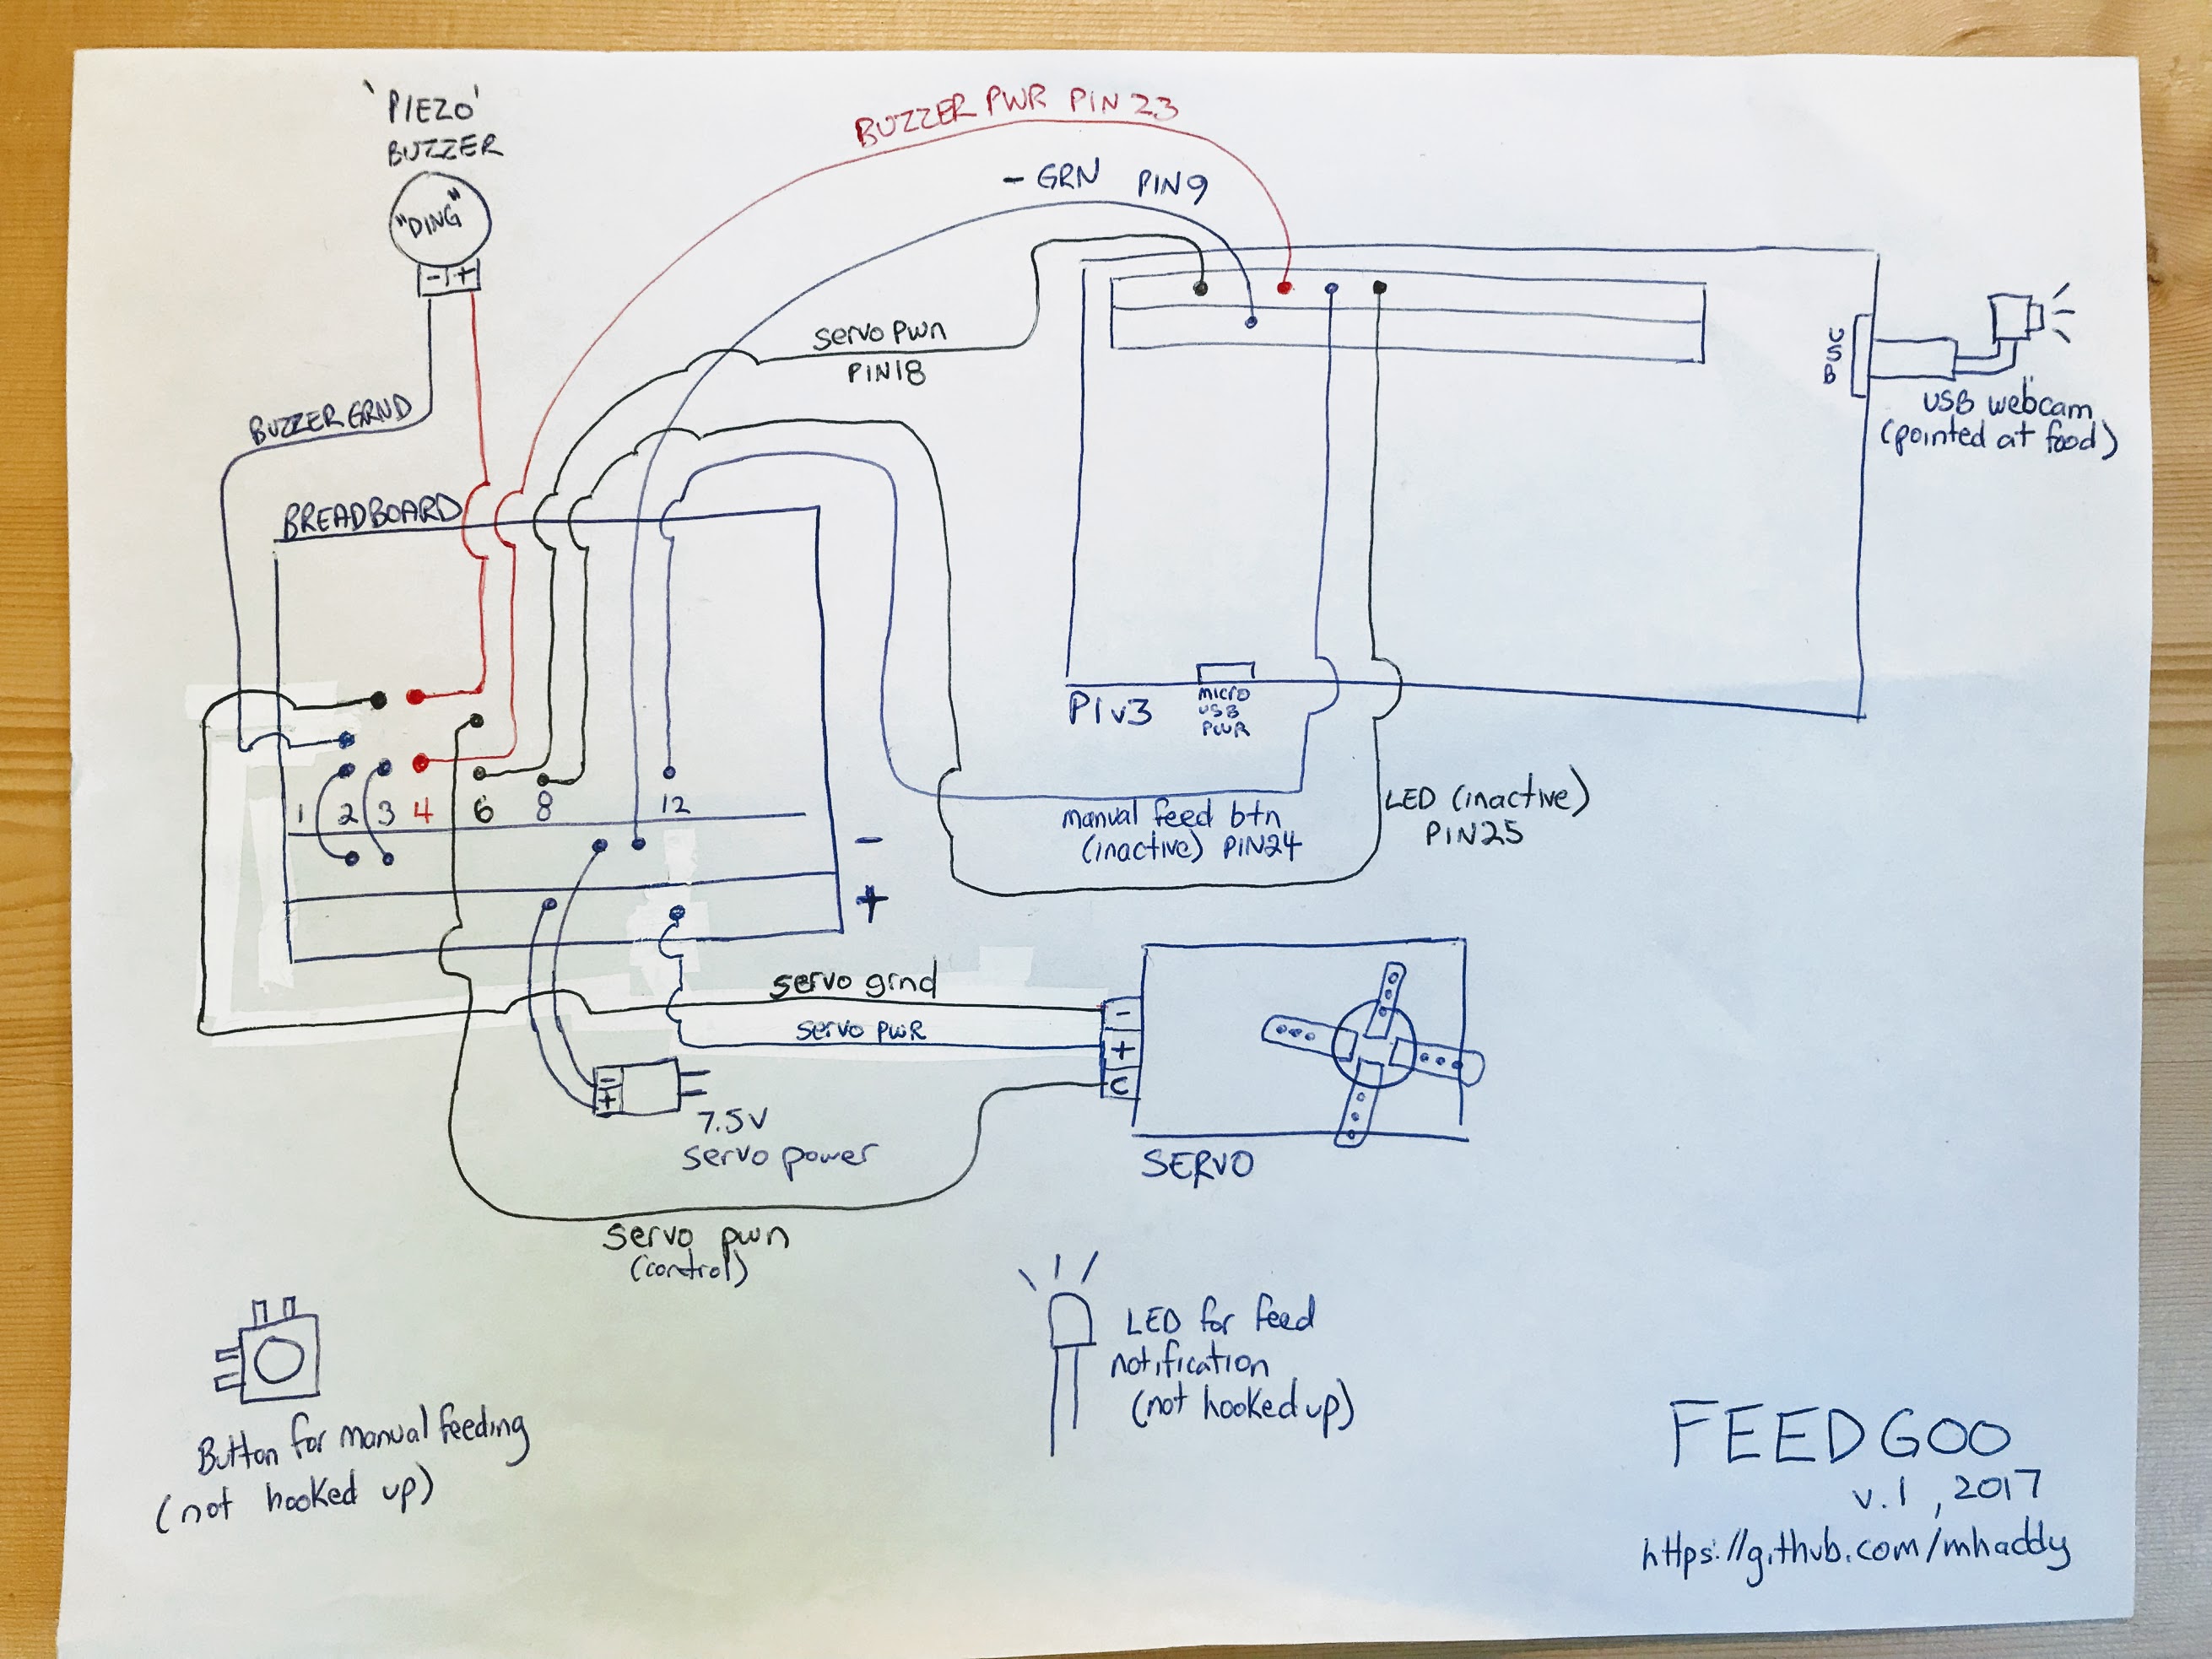 'PIEZO'
BUZZER
"DING"
- +
BUZZER PWR PIN 23
- GRN PIN 9
servo pwn
PIN18
BUZZER GRND
BREADBOARD
USB
USB webcam
(pointed at food)
PIv3
MICRO
USB
PWR
1 2 3 4 6 8 12
-
+
manual feed btn
(inactive) PIN24
LED (inactive)
PIN25
servo grnd
servo PWR
-
+
C
-
+
7.5V
servo power
SERVO
servo pwn
(control)
LED for feed
notification
(not hooked up)
Button for manual feeding
(not hooked up)
FEEDGOO
v.1, 2017
https://github.com/mhaddy